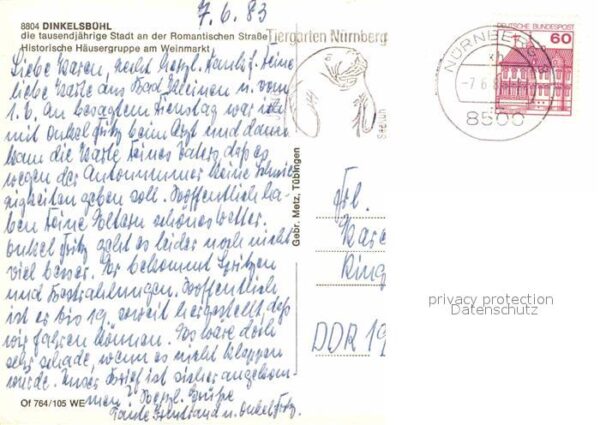 7.6.83
8804 DINKELSBÜHL
die tausendjährige Stadt an der Romantischen Straße
Historische Häusergruppe am Weinmarkt
Liebe Karen, recht herzl. Dank f. Deine
liebe Karte aus Bad Kleinen u. vom
1.6. Am besagten Dienstag war ich
mit Onkel Fritz beim Arzt und dann
kam die Karte Deines Vaters, daß es
wegen der Autonummer keine Schwie-
rigkeiten geben soll. Hoffentlich ha-
ben Deine Eltern schönes Wetter.
Onkel Fritz geht es leider noch nicht
viel besser. Er bekommt Spritzen
und Bestrahlungen. Hoffentlich
ist er bis 19. soweit hergestellt, daß
wir fahren können. Es wäre doch
sehr schade, wenn es nicht klappen
würde. Unser Brief ist sicher angekom-
men? Herzl. Grüße
Tante u. Onkel Fritz.
Of 764/105 WE
Gebr. Metz, Tübingen
Tiergarten Nürnberg
Seekuh
NÜRNBERG
-7.6.8
8500
DEUTSCHE BUNDESPOST
60
Frl.
Kare
Ring
DDR 19
privacy protection
Datenschutz